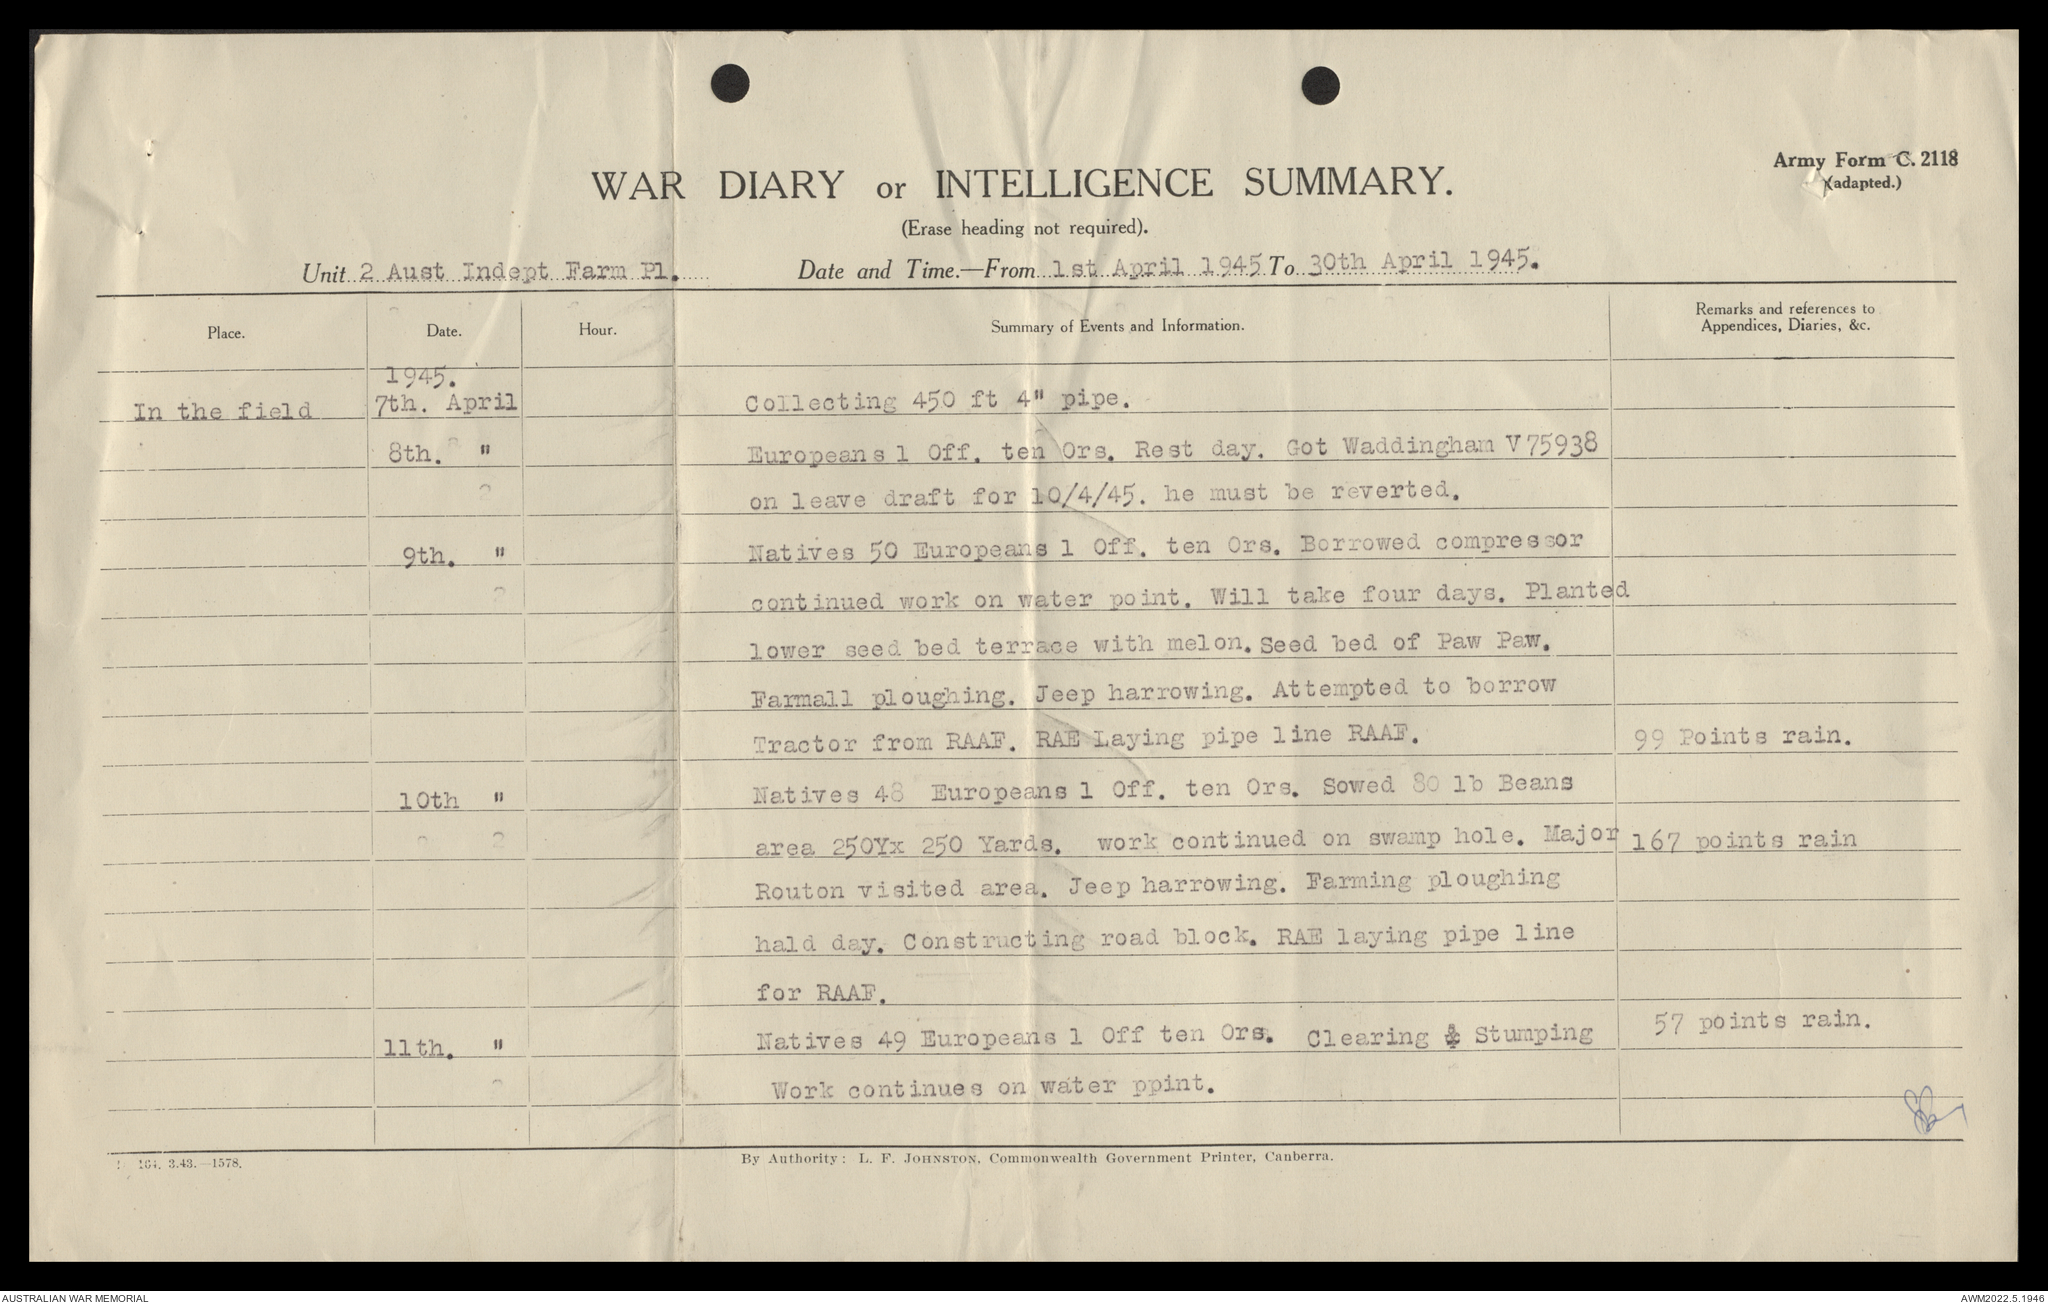 Army Form C. 2118
(adapted.)
WAR DIARY or INTELLIGENCE SUMMARY.
(Erase heading not required).
Unit 2 Aust Indept Farm Pl. Date and Time.—From 1st April 1945 To 30th April 1945.
Place. Date. Hour. Summary of Events and Information. Remarks and references to Appendices, Diaries, &c.
1945.
In the field 7th. April Collecting 450 ft 4" pipe.
8th. " Europeans 1 Off. ten Ors. Rest day. Got Waddingham V75938
on leave draft for 10/4/45. he must be reverted.
9th. " Natives 50 Europeans 1 Off. ten Ors. Borrowed compressor
continued work on water point. Will take four days. Planted
lower seed bed terrace with melon. Seed bed of Paw Paw.
Farmall ploughing. Jeep harrowing. Attempted to borrow
Tractor from RAAF. RAE Laying pipe line RAAF. 99 Points rain.
10th " Natives 48 Europeans 1 Off. ten Ors. Sowed 80 lb Beans
area 250Yx 250 Yards. work continued on swamp hole. Major 167 points rain
Routon visited area. Jeep harrowing. Farming ploughing
hald day. Constructing road block. RAE laying pipe line
for RAAF.
11th. " Natives 49 Europeans 1 Off ten Ors. Clearing & Stumping 57 points rain.
Work continues on water ppint.
164. 3.43.—1578. By Authority: L. F. JOHNSTON, Commonwealth Government Printer, Canberra.
AUSTRALIAN WAR MEMORIAL AWM2022.5.1946